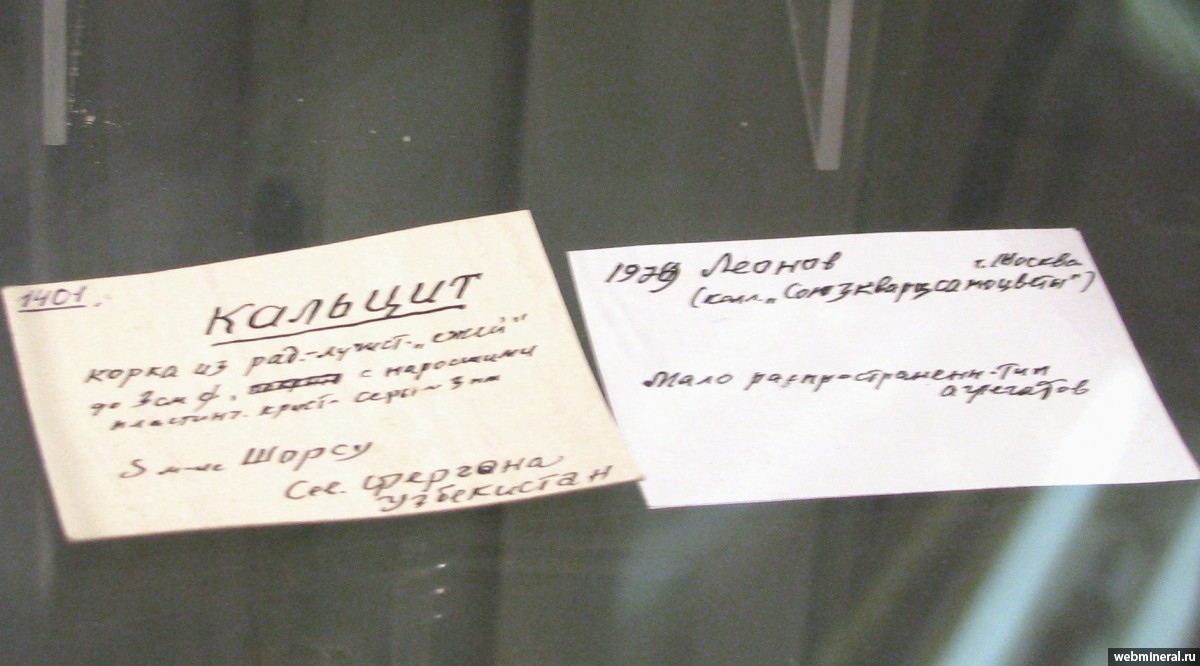 1401.
кальцит
корка из рад.-лучист. „ежей"
до 3 см ϕ, с наросшими
пластинч. крист. серы ~ 3 мм
S м-ние Шорсу
Сев. Фергана
Узбекистан
Леонов г. Москва
(колл. „Союзкварцсамоцветы")
Мало распространенн. тип
агрегатов
webmineral.ru